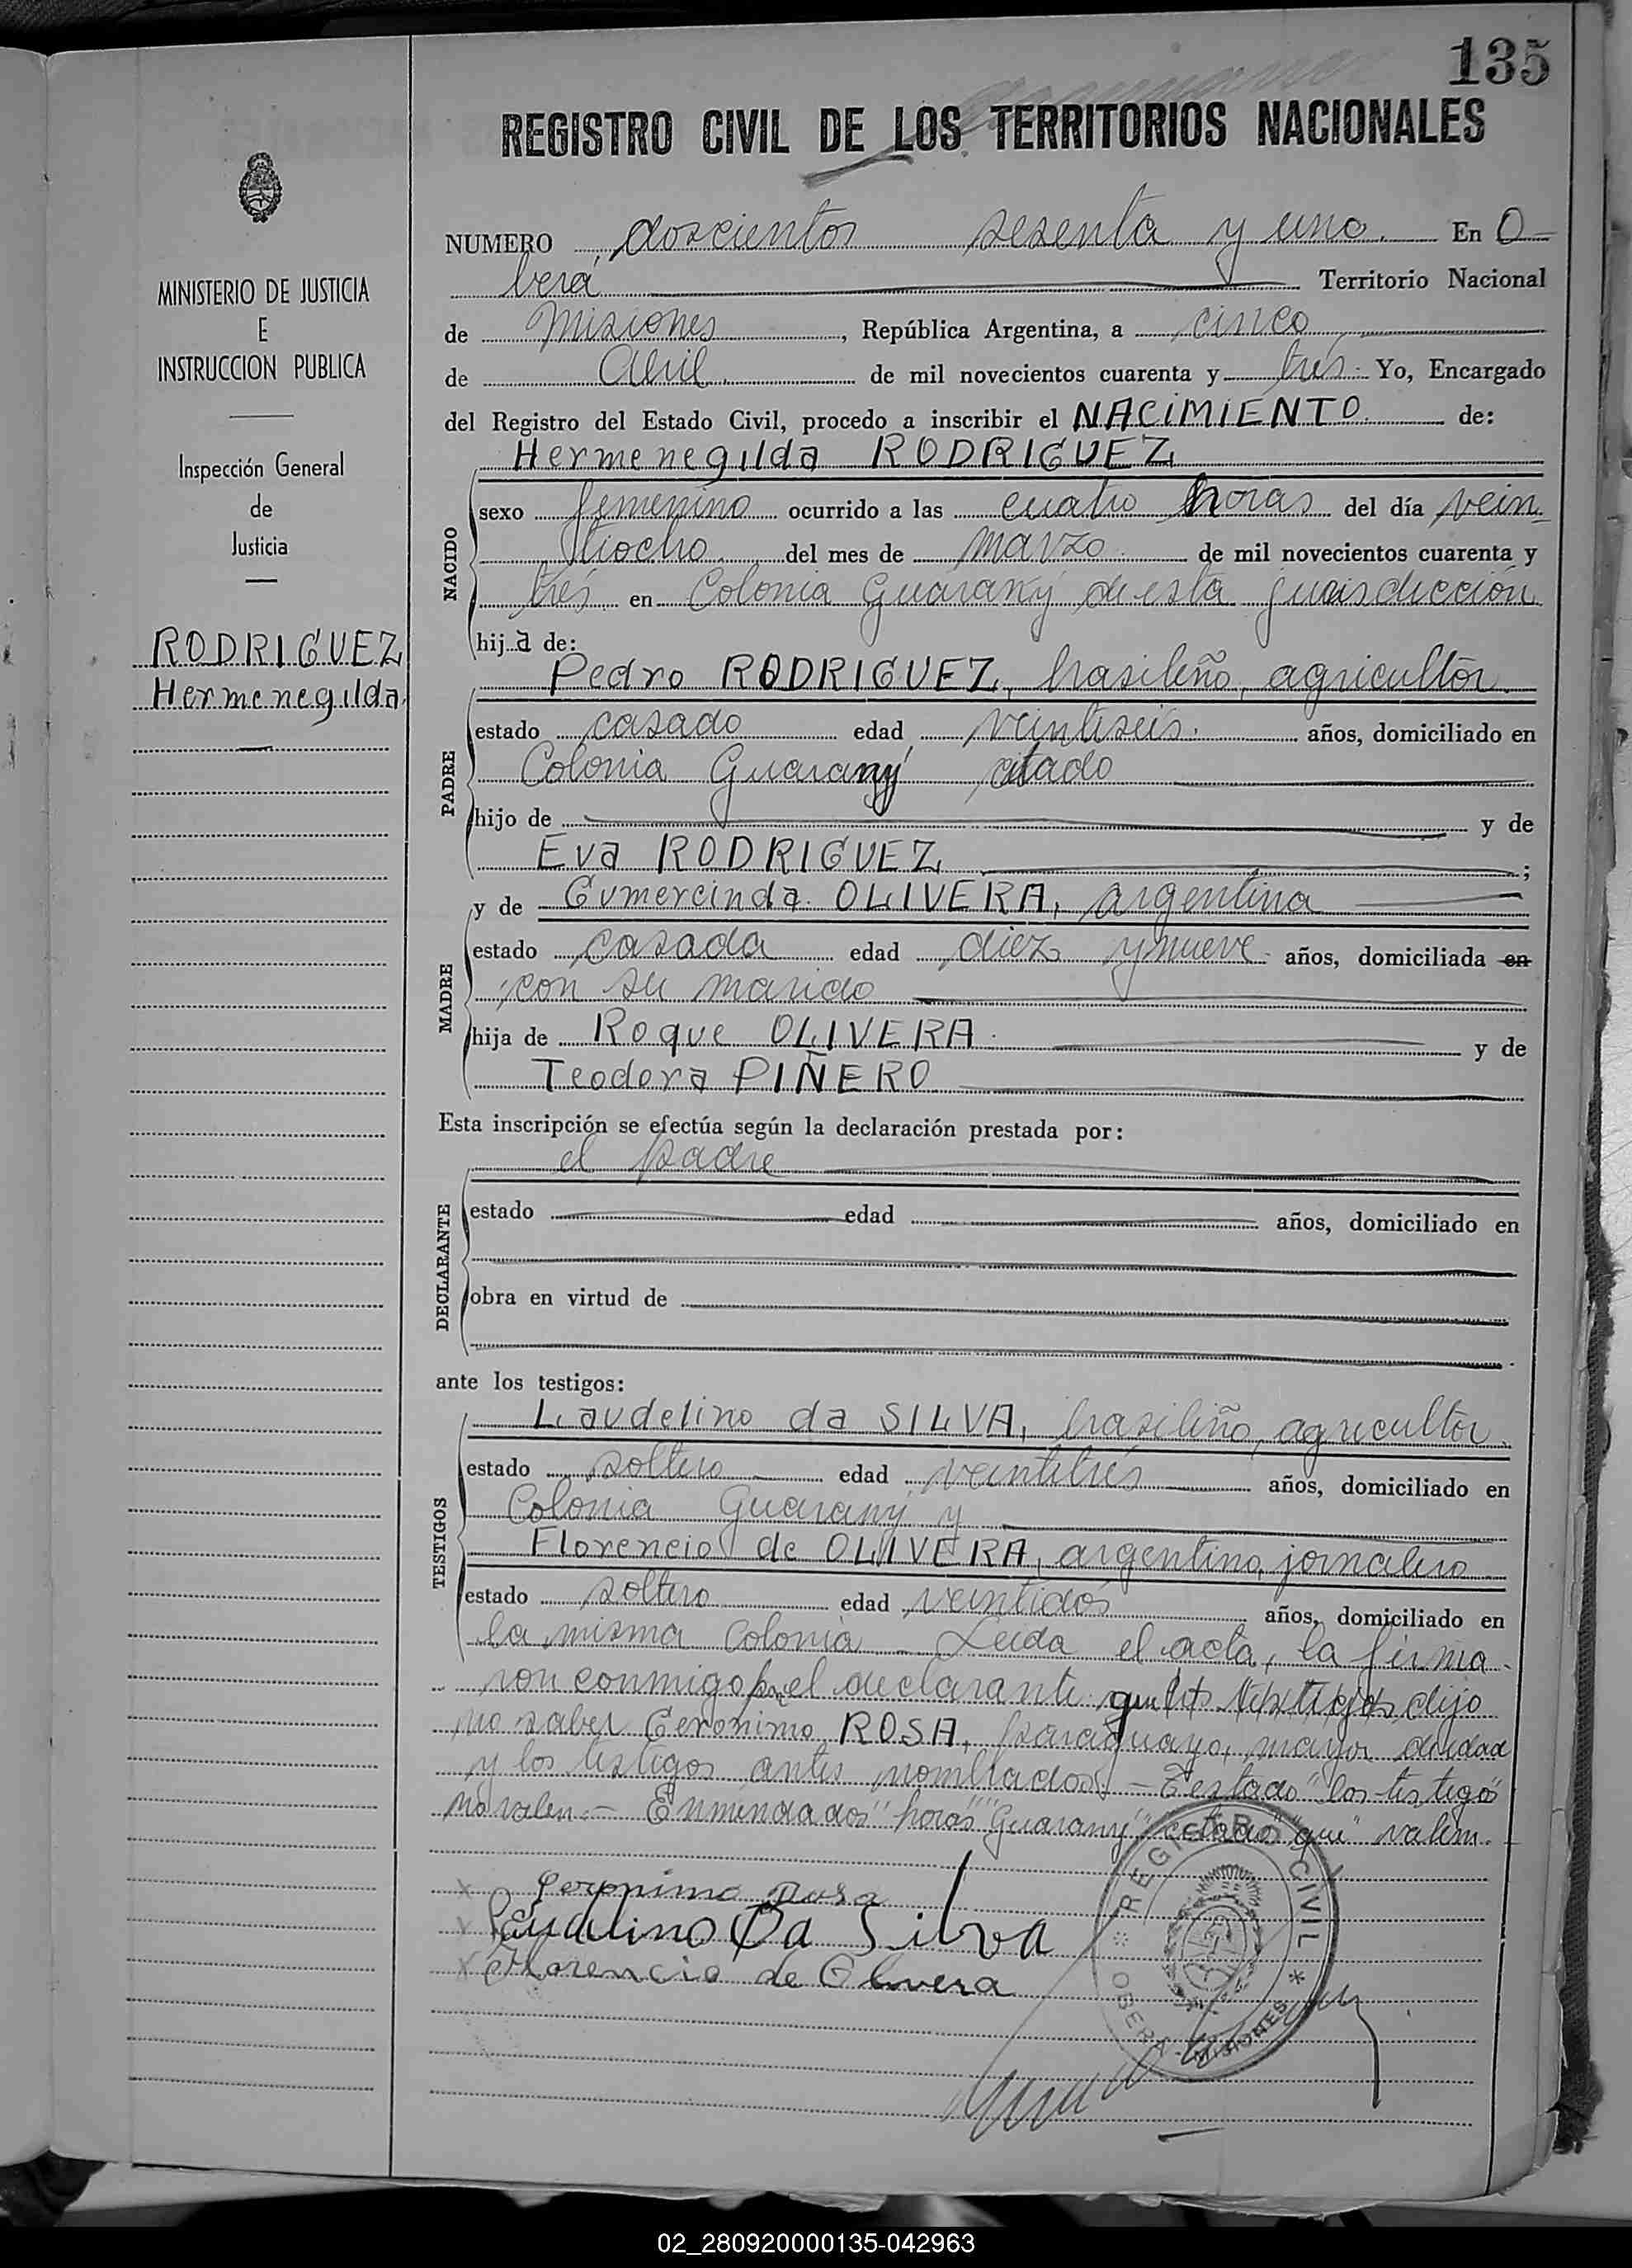 135
REGISTRO CIVIL DE LOS TERRITORIOS NACIONALES
MINISTERIO DE JUSTICIA
E
INSTRUCCION PUBLICA
Inspección General
de
Justicia
RODRIGUEZ
Hermenegilda.
NUMERO doscientos sesenta y uno. En O-
berá Territorio Nacional
de Misiones, República Argentina, a cinco
de Abril de mil novecientos cuarenta y trés. Yo, Encargado
del Registro del Estado Civil, procedo a inscribir el NACIMIENTO de:
NACIDO
Hermenegilda RODRIGUEZ
sexo femenino ocurrido a las cuatro horas del día vein-
tiocho del mes de marzo de mil novecientos cuarenta y
trés en Colonia Guarany de esta jurisdicción
hij a de:
PADRE
Pedro RODRIGUEZ, brasileño, agricultor.
estado casado edad veintiseis. años, domiciliado en
Colonia Guarany citado
hijo de y de
Eva RODRIGUEZ ;
MADRE
y de Gumercinda OLIVERA, argentina
estado casada edad diez y nueve años, domiciliada en
con su marido
hija de Roque OLIVERA y de
Teodora PIÑERO
Esta inscripción se efectúa según la declaración prestada por:
DECLARANTE
el padre
estado edad años, domiciliado en
obra en virtud de
ante los testigos:
TESTIGOS
Laudelino da SILVA, brasileño, agricultor.
estado soltero edad veintitrés años, domiciliado en
Colonia Guarany y
Florencio de OLIVERA, argentino, jornalero
estado soltero edad veintidós años, domiciliado en
la misma Colonia - Leida el acta, la firma-
ron conmigo por el declarante que los testigos dijo
no saber Geronimo ROSA, paraguayo, mayor de edad
y los testigos antes nombrados. - Testado "los testigos"
no valen. - Enmendados "horas" "Guarany" "citado" "que" valen. -
x Geronimo Rosa
x Laudelino Da Silva
x Florencio de Olivera
REGISTRO CIVIL
OBERA - MISIONES
02_280920000135-042963